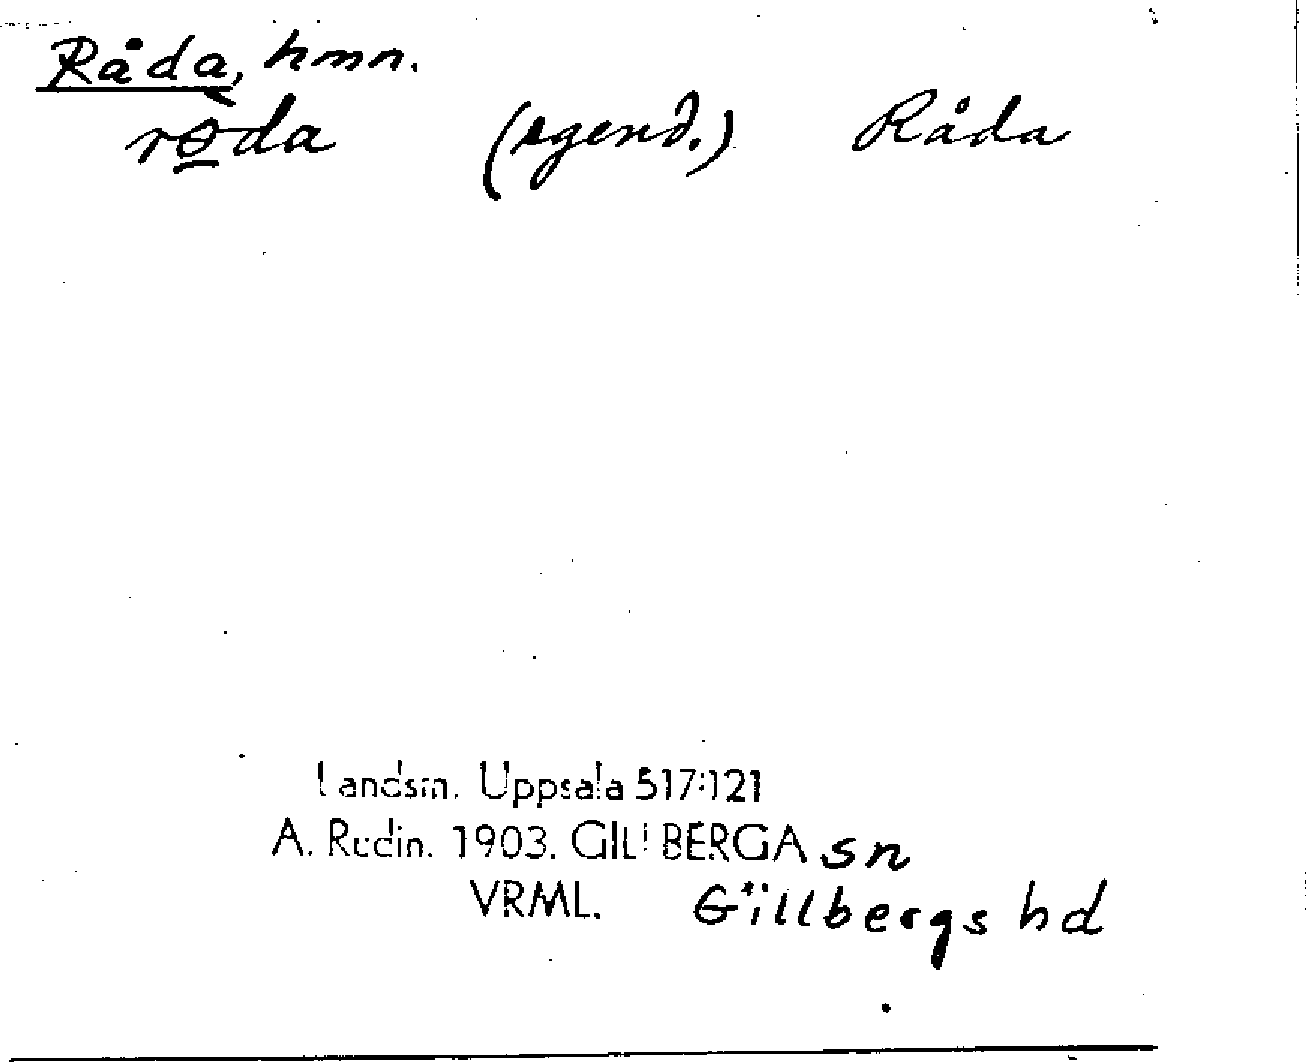 Råda, hmn.
rø̀da (sgend.) Råda
Landsm. Uppsala 517:121
A. Rudin. 1903. GILLBERGA sn
VRML. Gillbergs hd